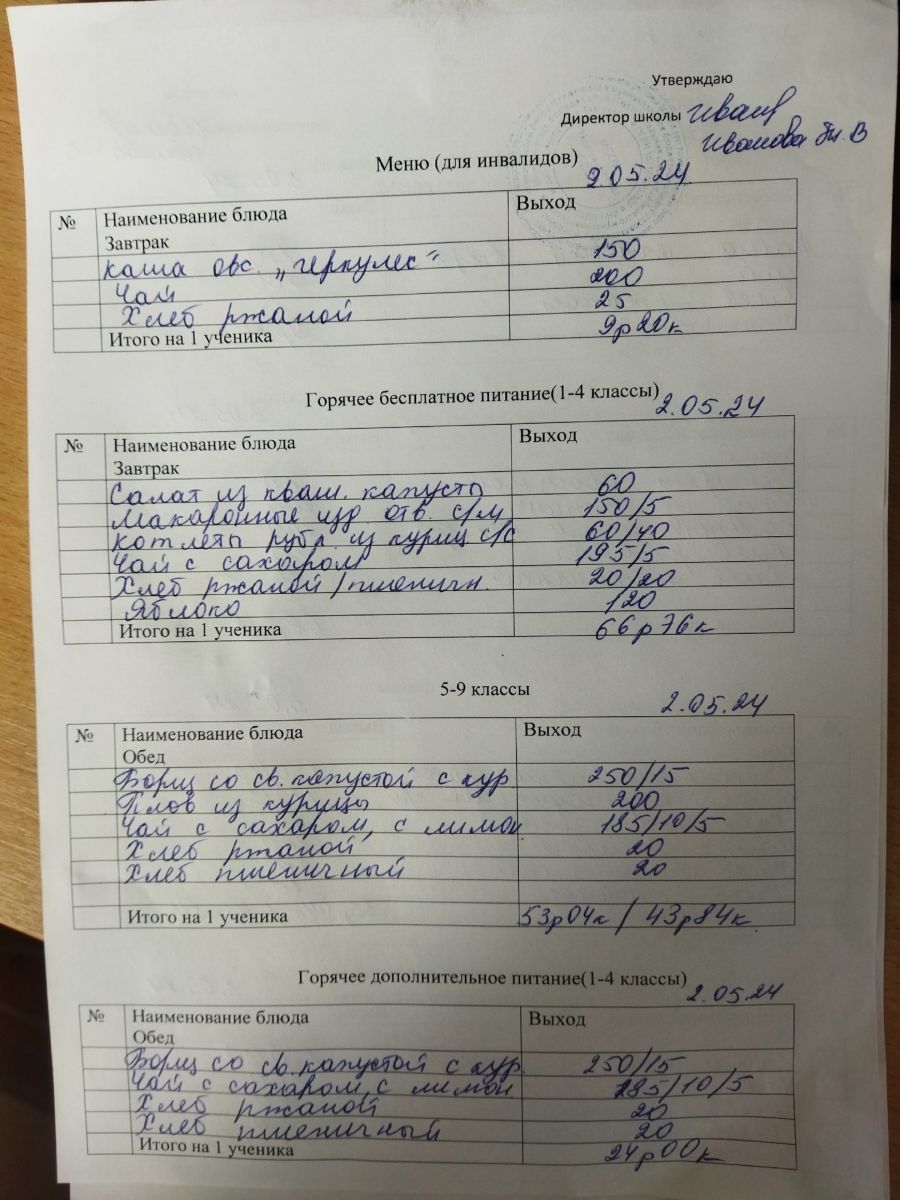 Утверждаю
Директор школы
Иванова Н.В
Меню (для инвалидов)
2.05.24
№ Наименование блюда Выход
Завтрак
каша овс. „геркулес" 150
Чай 200
Хлеб ржаной 25
Итого на 1 ученика 9р20к
Горячее бесплатное питание(1-4 классы) 2.05.24
№ Наименование блюда Выход
Завтрак
Салат из кваш. капусты 60
Макаронные изд отв. с/м 150/5
котлеты рубл. из куриц с/с 60/40
Чай с сахаром 195/5
Хлеб ржаной/пшеничн. 20/20
Яблоко 120
Итого на 1 ученика 66р76к
5-9 классы 2.05.24
№ Наименование блюда Выход
Обед
Борщ со св.капустой с кур 250/15
Плов из курицы 200
Чай с сахаром, с лимон 185/10/5
Хлеб ржаной 20
Хлеб пшеничный 20
Итого на 1 ученика 53р04к / 43р84к
Горячее дополнительное питание(1-4 классы) 2.05.24
№ Наименование блюда Выход
Обед
Борщ со св.капустой с кур 250/15
Чай с сахаром, с лимон 185/10/5
Хлеб ржаной 20
Хлеб пшеничный 20
Итого на 1 ученика 24р00к